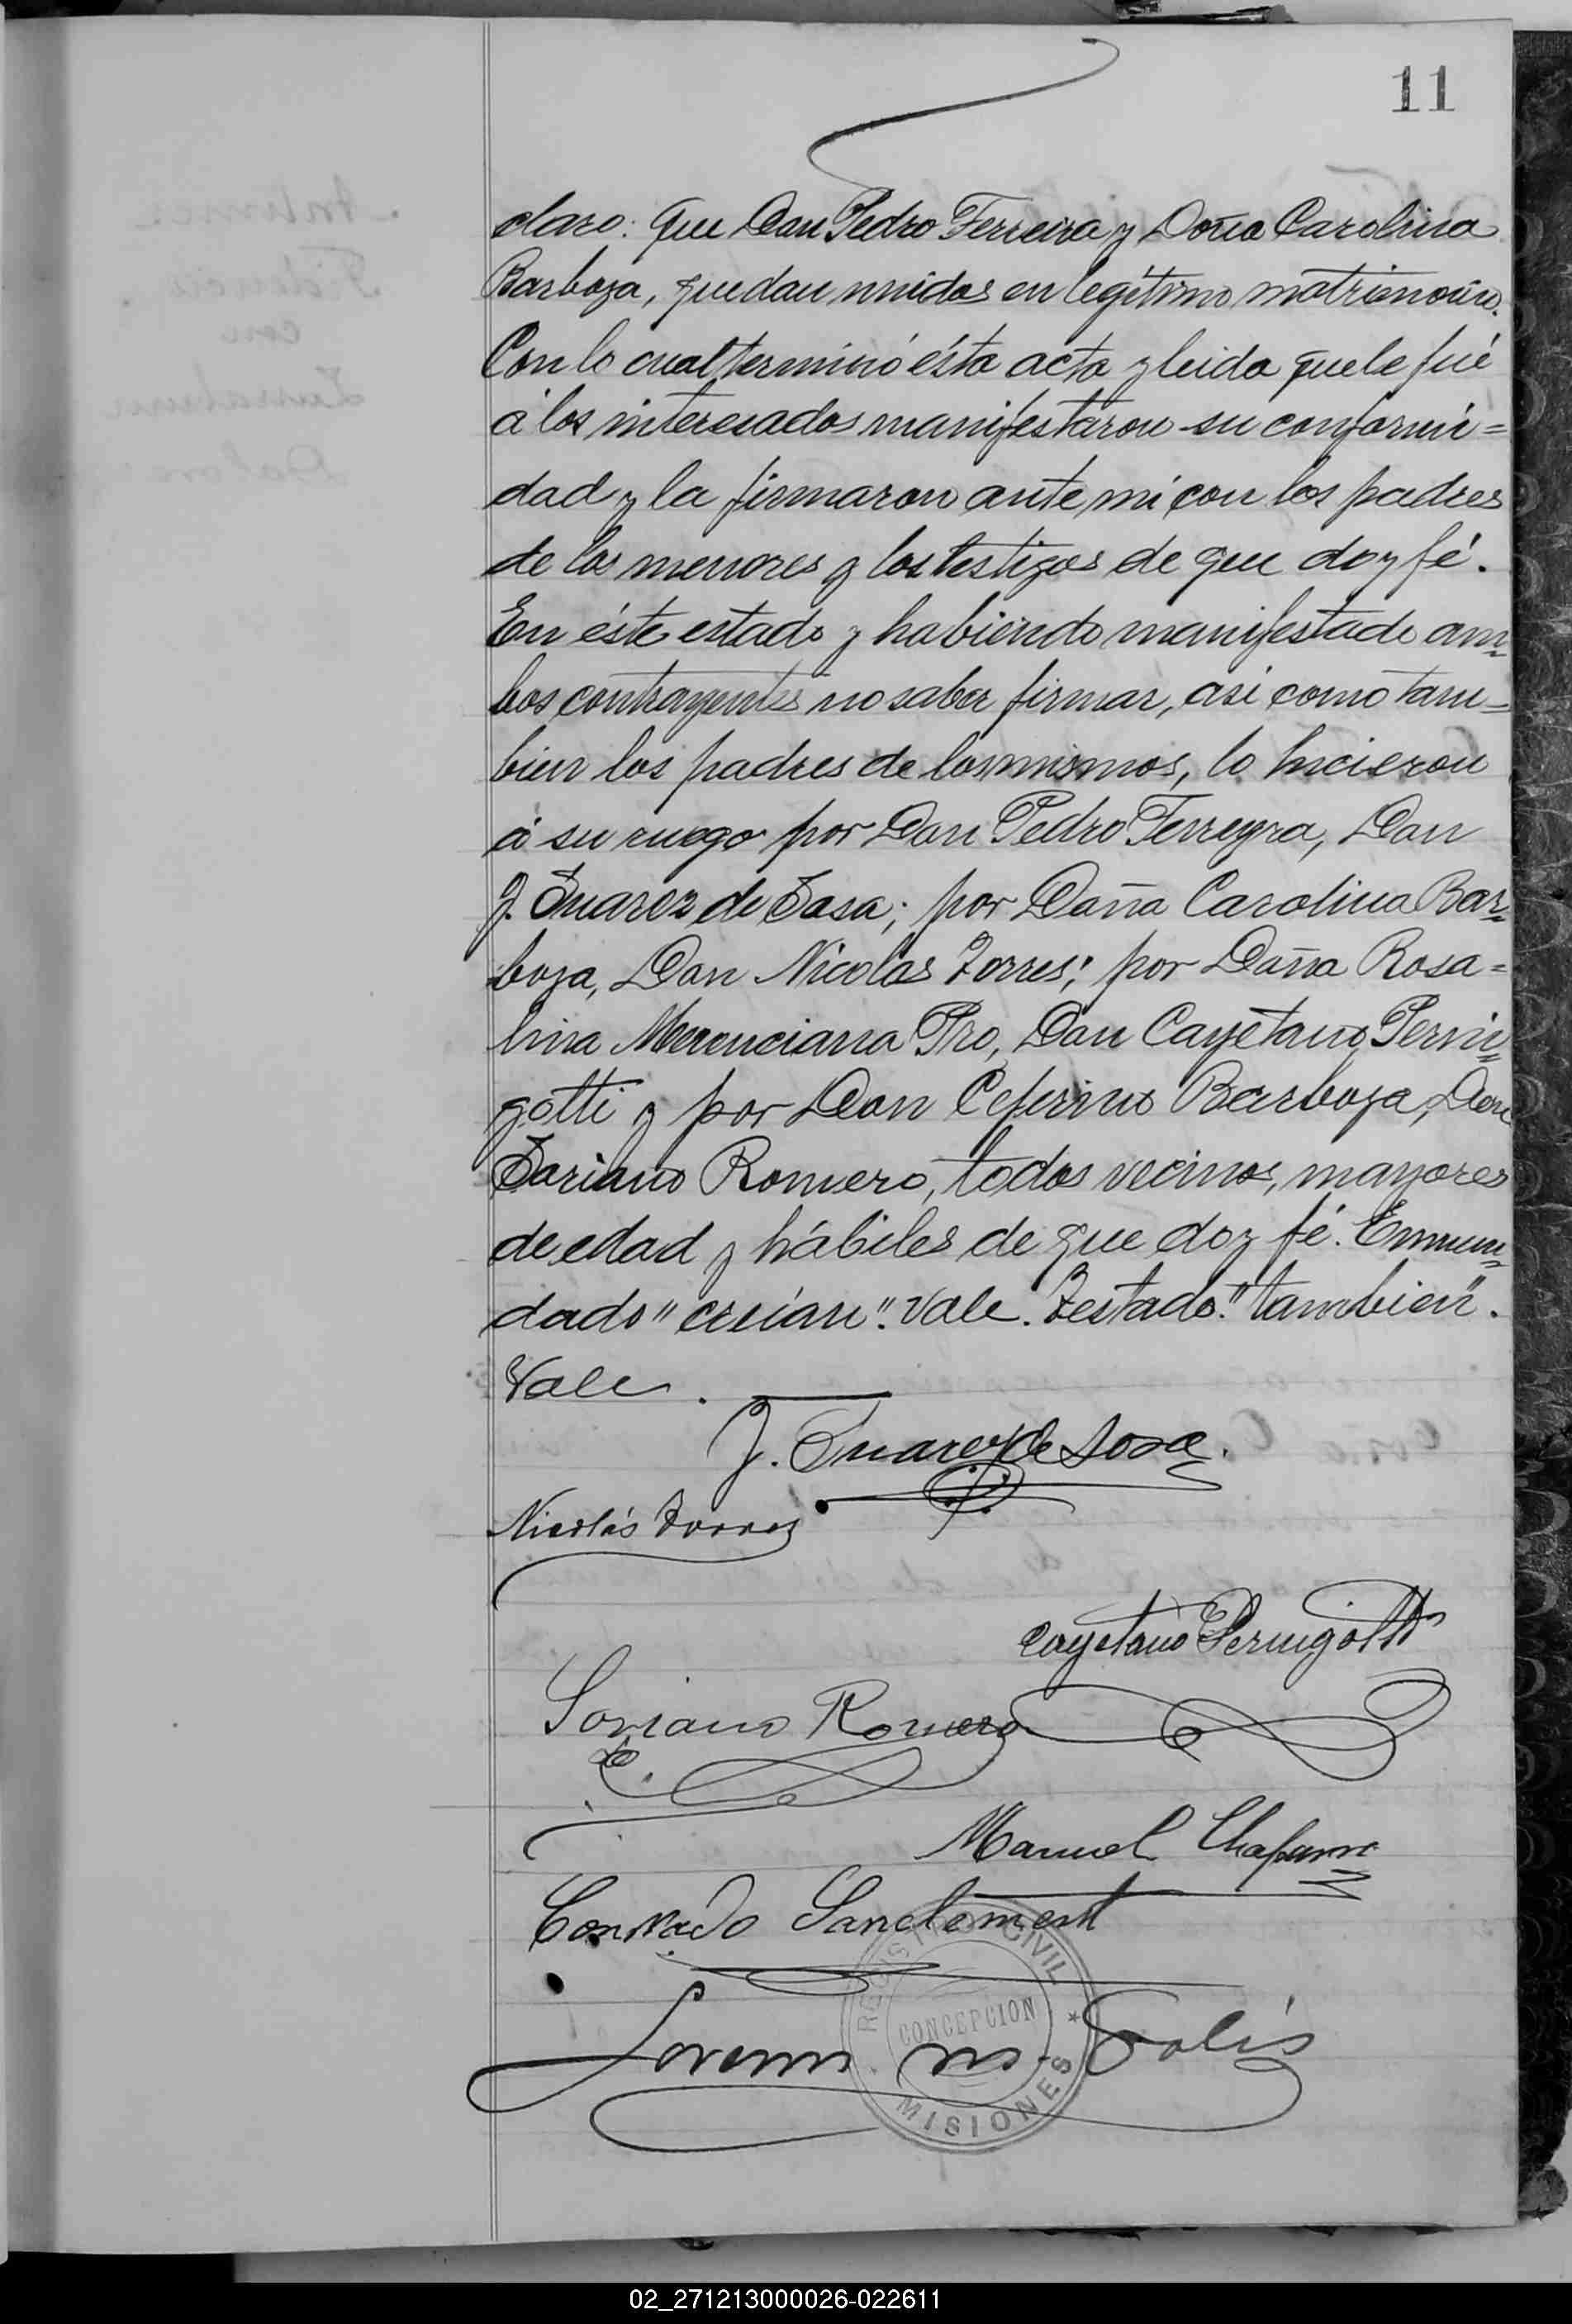 11
claro: que Don Pedro Ferreira y Doña Carolina
Barboza, quedan unidos en legítimo matrimonio.
Con lo cual terminó ésta acta y leida que le fué
á los interesados manifestaron su conformi=
dad y la firmaron ante mi con los padres
de los menores y los testigos de que doy fé.
En éste estado y habiendo manifestado am=
bos contrayentes no saber firmar, asi como tam=
bien los padres de los mismos, lo hicieron
á su ruego por Don Pedro Ferreyra, Don
J. Suarez de Sosa; por Doña Carolina Bar=
boza, Don Nicolas Torres; por Doña Rosa=
lina Merenciana Pro, Don Cayetano Perni=
gotti y por Don Ceferino Barboza, Don
Soriano Romero, todos vecinos, mayores
de edad y hábiles de que doy fé. Enmen=
dado "creían". Vale. Testado "tambien".
Vale.
J. Suarez de Sosa.
Nicolás Torres
Cayetano Pernigotti
Soriano Romero
Manuel
Conrado Sanclement
Solís
REGISTRO CIVIL
CONCEPCION
MISIONES
02_271213000026-022611